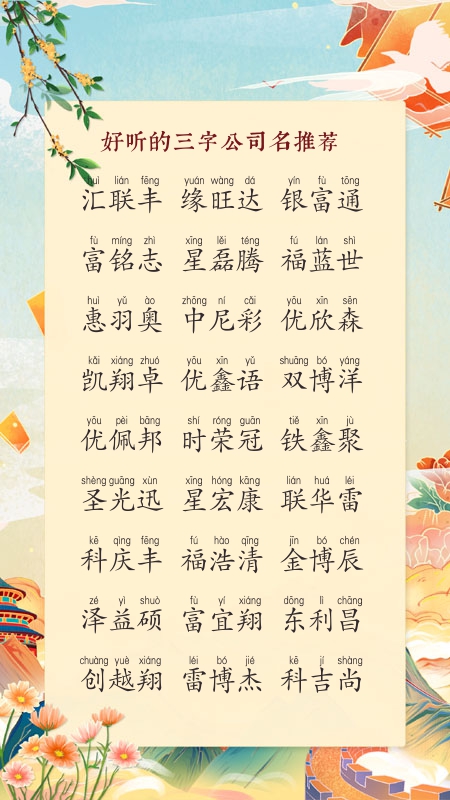 好听的三字公司名推荐
huì lián fēng yuán wàng dá yín fù tōng
汇联丰 缘旺达 银富通
fù míng zhì xīng lěi téng fú lán shì
富铭志 星磊腾 福蓝世
huì yǔ ào zhōng ní cǎi yōu xīn sēn
惠羽奥 中尼彩 优欣森
kǎi xiáng zhuó yōu xīn yǔ shuāng bó yáng
凯翔卓 优鑫语 双博洋
yōu pèi bāng shí róng guān tiě xīn jù
优佩邦 时荣冠 铁鑫聚
shèng guāng xùn xīng hóng kāng lián huá léi
圣光迅 星宏康 联华雷
kē qìng fēng fú hào qīng jīn bó chén
科庆丰 福浩清 金博辰
zé yì shuò fù yí xiáng dōng lì chāng
泽益硕 富宜翔 东利昌
chuàng yuè xiáng léi bó jié kē jí shàng
创越翔 雷博杰 科吉尚